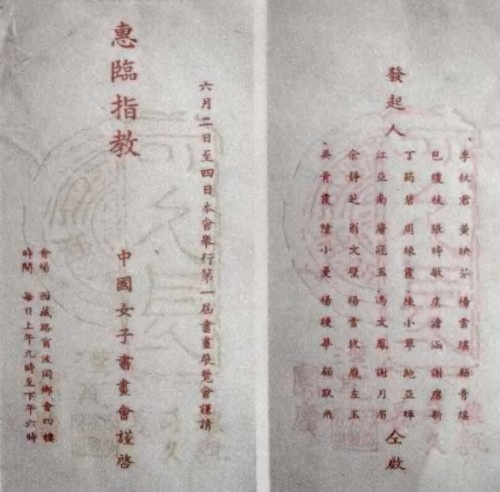 六月二日至四日本會舉行第一屆書畫展覽會謹請
惠臨指教
中國女子書畫會謹啓
會場 西藏路甯波同鄉會四樓
時間 每日上午九時至下午六時
發起人
李秋君 黃映芬 楊雪瑤 顧青瑤
包瓊枝 張時敏 虞澹涵 謝應新
丁筠碧 周鍊霞 陳小翠 鮑亞暉
江亞南 唐冠玉 馮文鳳 謝月眉
余靜芝 翁文璧 楊雪玖 龐左玉
吳青霞 陸小曼 楊縵華 顧默飛
仝啟